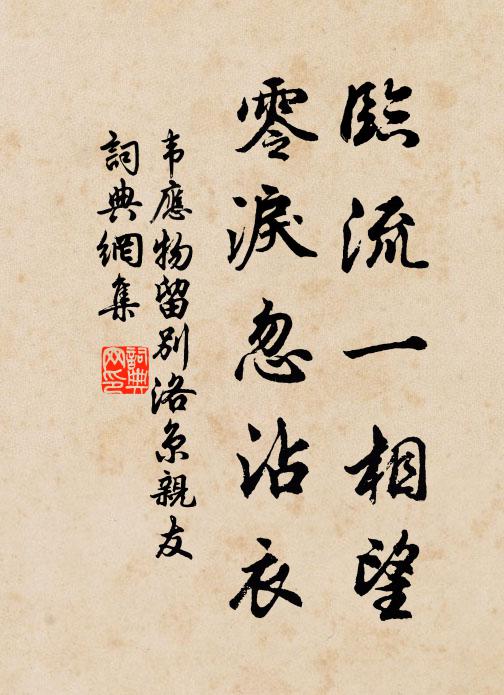 臨流一相望
零淚忽沾衣
韦應物留别洛京親友
詞典網集
詞典网印